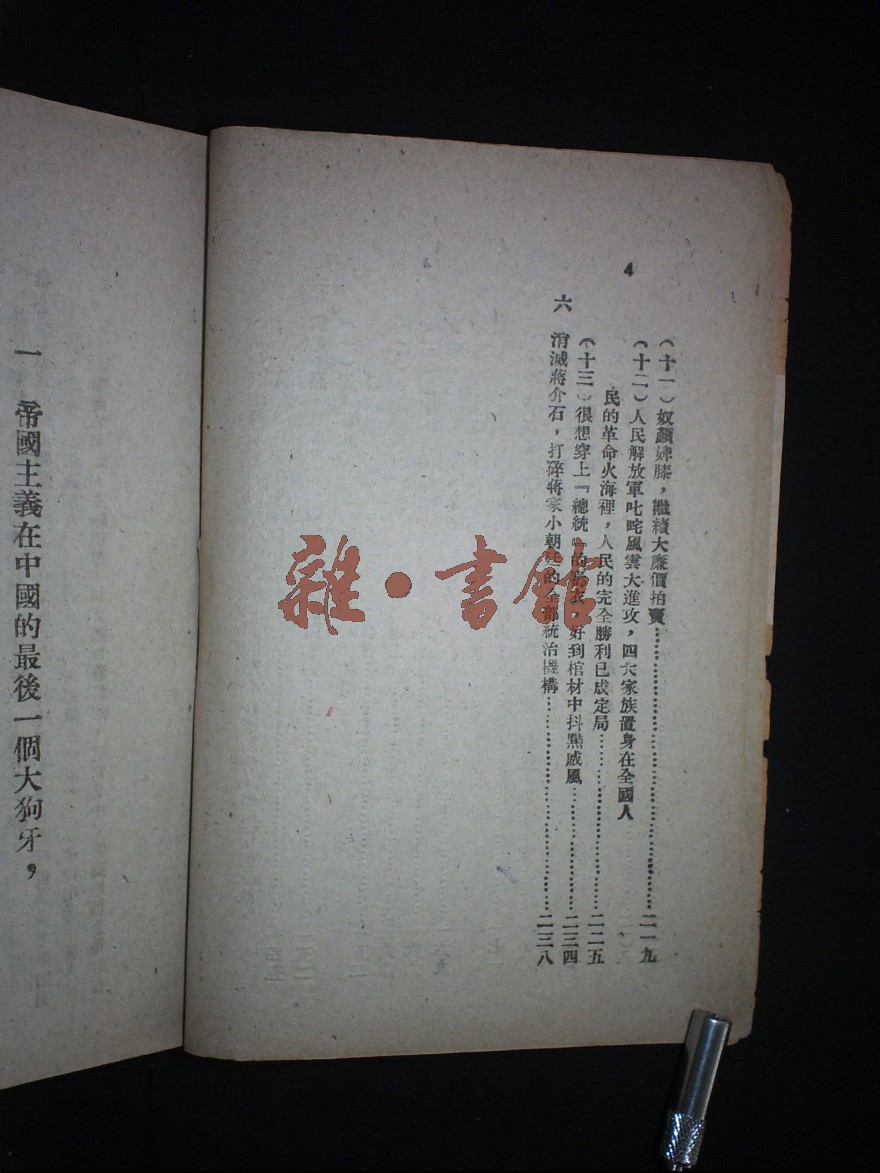 4
(十一)奴顏婢膝,繼續大廉價拍賣……二一九
(十二)人民解放軍叱咤風雲大進攻,四大家族置身在全國人
民的革命火海裡,人民的完全勝利已成定局……二二五
(十三)很想穿上『總統』的 衣,好到棺材中抖點威風……二三四
六 消滅蔣介石,打碎蔣家小朝廷的全部統治機構……二三八
一 帝國主義在中國的最後一個大狗牙,
雜·書館